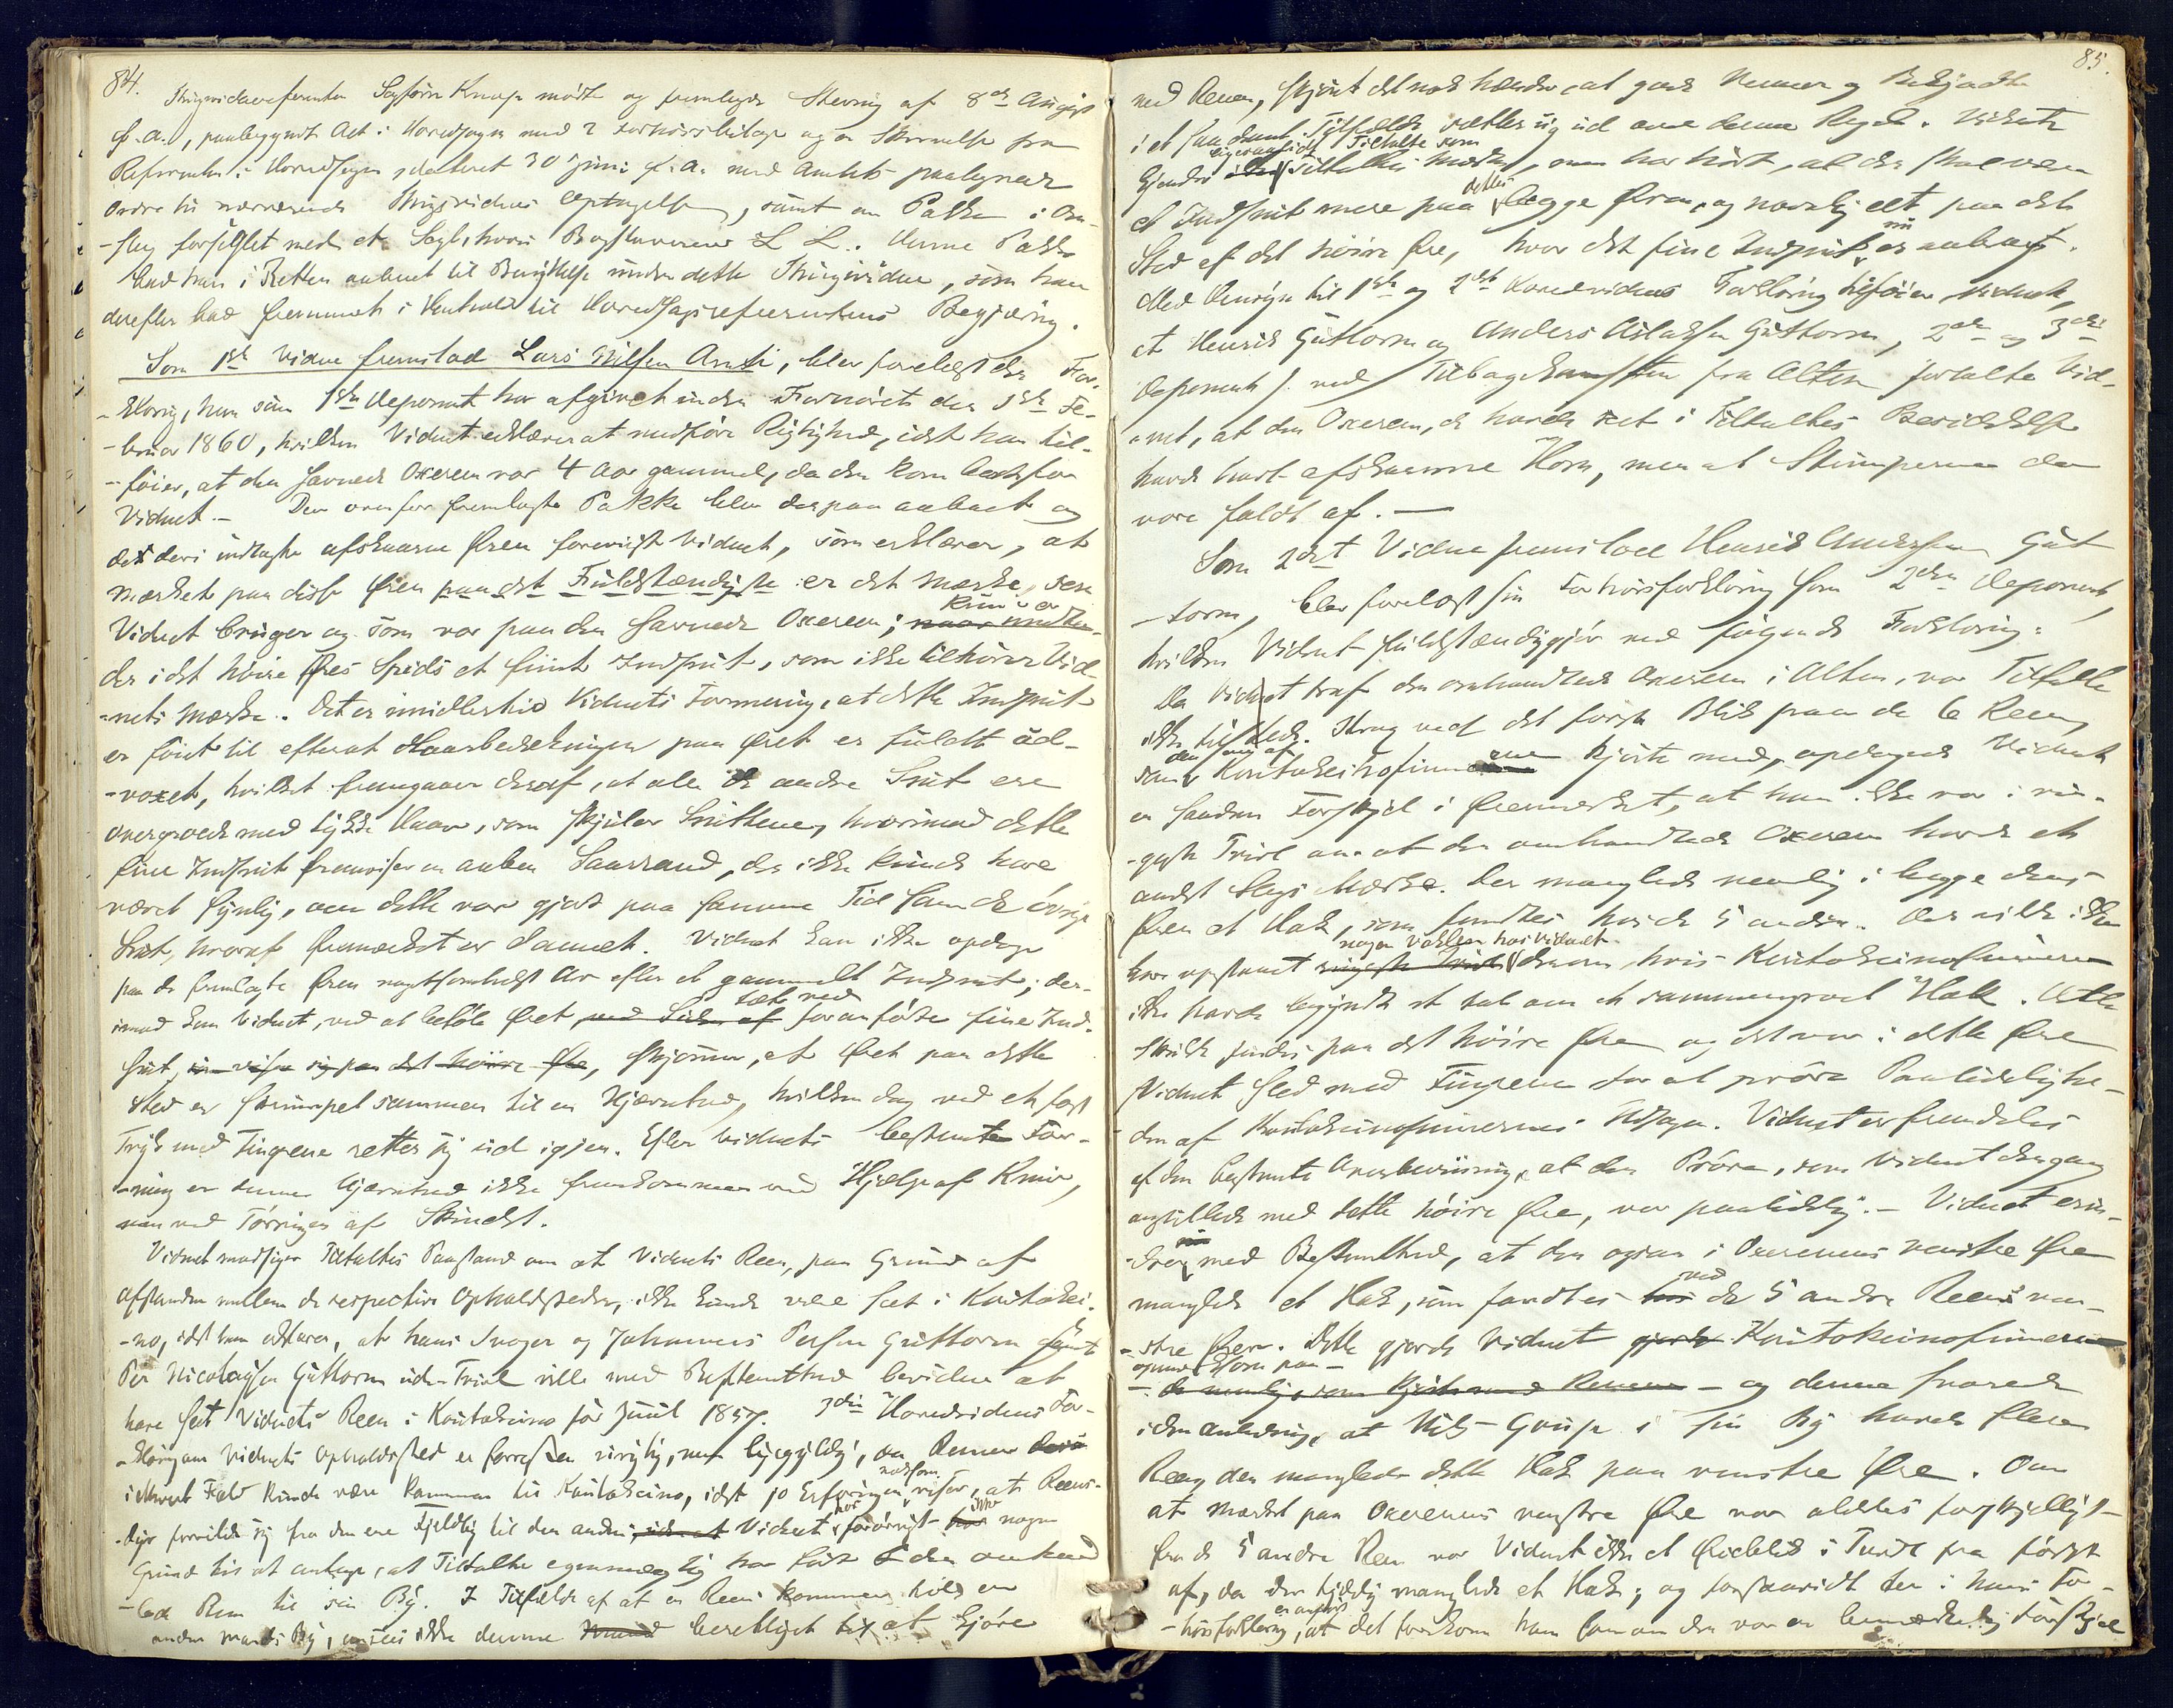 84.
Thingvidnereferenten Sagförer Knap mödte og fremlagde Stevning af 8de August
f. A., paabegyndt Act i Hovedsagen med 2 Forhörsbilage og en Skrivelse fra
Referenten i Hovedsagen dateret 30 Juni f. A. med Amtets paategnede
Ordre til nærværende Thingvidnes Optagelse, samt en Pakke i Om-
-slag forseglet med et Segl, hvori Bogstaverne L L. Denne Pakke
bad han i Retten aabnet til Benyttelse under dette Thingvidne, som han
derefter bad fremmet i Henhold til Hovedsagsreferentens Begjæring.
Som 1ste Vidne fremstod Lars Nilsen Anti, blev forelæst den For-
-klaring, han som 1ste Deponent har afgivet under Forhöret den 1ste Fe-
-bruar 1860, hvilken Vidnet erklærer at medföre Rigtighed, idet han til-
-föier, at den savnede Oxereen var 4 Aar gammel, da den kom bort fra
Vidnet. — Den ovenfor fremlagte Pakke blev derpaa aabnet og
de deri indlagte afskaarne Ören foreviist Vidnet, som erklærer, at
Mærket paa disse Ören paa det Fuldstændigste er det Mærke, som
Vidnet bruger og som var paa den savnede Oxereen; kun er
der i det höire Öres Spids et fiint Indsnit, som ikke tilhörer Vid-
-nets Mærke. Det er imidlertid Vidnets Formening, at dette Indsnit
er föiet til efterat Haarbedækningen paa Öret er fuldt ud-
-voxet, hvilket fremgaaer deraf, at alle de andre Snit ere
overgroede med tykke Haar, som skjuler Snittene, hvorimod dette
fine Indsnit fremviser en aaben Saarrand, der ikke kunde have
været synlig, om dette var gjort paa samme Tid som de övrige
Snit, hvoraf Öremærket er dannet. Vidnet kan ikke opdage
paa de fremlagte Ören nogetsomhelst Ar efter et gammelt Indsnit; der-
imod kan Vidnet, ved at beföle Öret tæt ved foranförte fine Ind-
snit, som viser sig paa det höire Öre, skjönne, at Öret paa dette
Sted er skrumpet sammen til en Hjørnehed, hvilken dog ved et fast
Tryk med Fingrene retter sig ud igjen. Efter Vidnets bestemte For-
-mening er denne ikke fremkommen ved Hjælp af Kniv,
men ved Törringen af Skindet.
Vidnet modsiger Tiltaltes Paastand om at Vidnets Reen, paa Grund af
Afstanden mellem de respective Opholdssteder, ikke kunde være seet i Koutokei-
-no, idet han erklærer, at hans Svoger og Johannes Persen Guttorm samt
Per Nicolaysen Guttorm uden Tvivl ville med Bestemthed bevidne at
have seet Vidnets Reen i Koutokeino för Juul 1857. 3die Hovedvidnes For-
-klaring om Vidnets Opholdssted er forresten urigtig, men ligegyldig, da Renen
i ethvert Fald kunde være kommen til Koutokeino, idet jo Erfaringen noksom viser, at Reens-
-dyr forvilde sig fra den ene Fjeldby til den anden; Vidnet har forövrigt ikke nogen
Grund til at antage, at Tiltalte egenmægtig har fört den omhand-
-lede Reen til sin By. I Tilfælde af at en Reen kommer hid en
anden Mands By, ansees ikke denne berettiget til at gjöre
85.
ved Reen, skjönt det nok hænder, at gode Venner og Bekjendte
i et saadant Tilfælde retter sig ud over denne Regel. Vidnet
kjender ligeoverfor Tiltalte som Tiltaltes Mærke, men har hört, at der skal være
et Indsnit mere paa dettes begge Ören, og navnlig eet paa det
Sted af det höire Öre, hvor det fine Indsnit nu er anbragt.
Med Hensyn til 1ste og 2det Hovedvidnes Forklaring tilföier Vidnet,
at Henrik Guttorm og Anders Aslaksen Guttorm, 2den og 3die
Deponent ved Tilbagekomsten fra Alten fortalte Vid-
-net, at den Oxereen, de havde seet i Tiltaltes Besiddelse
havde havt afskaarne Horn, men at Stumperne da
vare faldt af. —
Som 2det Vidne fremstod Henrik Andersen Gut-
-torm, blev forelæst sin Forhörsforklaring som 2den Deponent,
hvilken Vidnet fuldstændiggjör ved fölgende Forklaring:
Da Vidnet traf den omhandlede Oxereen i Alten, var Tiltalte
ikke tilstede. Strax ved det förste Blik paa de 6 Reen,
som den ene af Koutokeinofinnerne kjörte med, opdagede Vidnet
en saadan Forskjel i Öremærket, at han ikke var i rin-
-geste Tvivl om at den omhandlede Oxereen havde et
andet Slags Mærke. Der manglede nemlig i begge dens
Ören et Hak, som fandtes hos de 5 andre. Der vilde ikke
have opstaaet nogen Vaklen hos Vidnet derom hvis Koutokeinofinnerne
ikke havde begyndt at tale om et sammengroet Hak. Dette
skulde findes paa det höire Öre og det var i dette Öre
Vidnet fled med Fingrene for at pröve Paalidelighe-
-den af Koutokeinofinnernes Udsagn. Vidnet er fremdeles
af den bestemte Overbeviisning, at den Pröve, som Vidnet dengang
anstillede med dette höire Öre, var paalidelig. — Vidnet erin-
-drer med Bestemthed, at der ogsaa i Oxereens venstre Öre
manglede et Hak, som fandtes ved de 5 andre Reens ven-
-stre Ören. Dette gjorde Vidnet Koutokeinofinnerne
opmærksom paa —
— og denne svarede
i den Anledning, at Nils Gaup i sin By havde flere
Reen, der manglede dette Hak paa venstre Öre. Om
at Mærket paa Oxereens venstre Öre var aldeles forskjelligt
fra de 5 andre Reen var Vidnet ikke et Öieblik i Tvivl fra först
af, da der tydelig manglede et Hak; og forsaavidt der i hans For-
-hörsforklaring er anfört, at det forekom ham som om der var en bemærkelig Forskjel